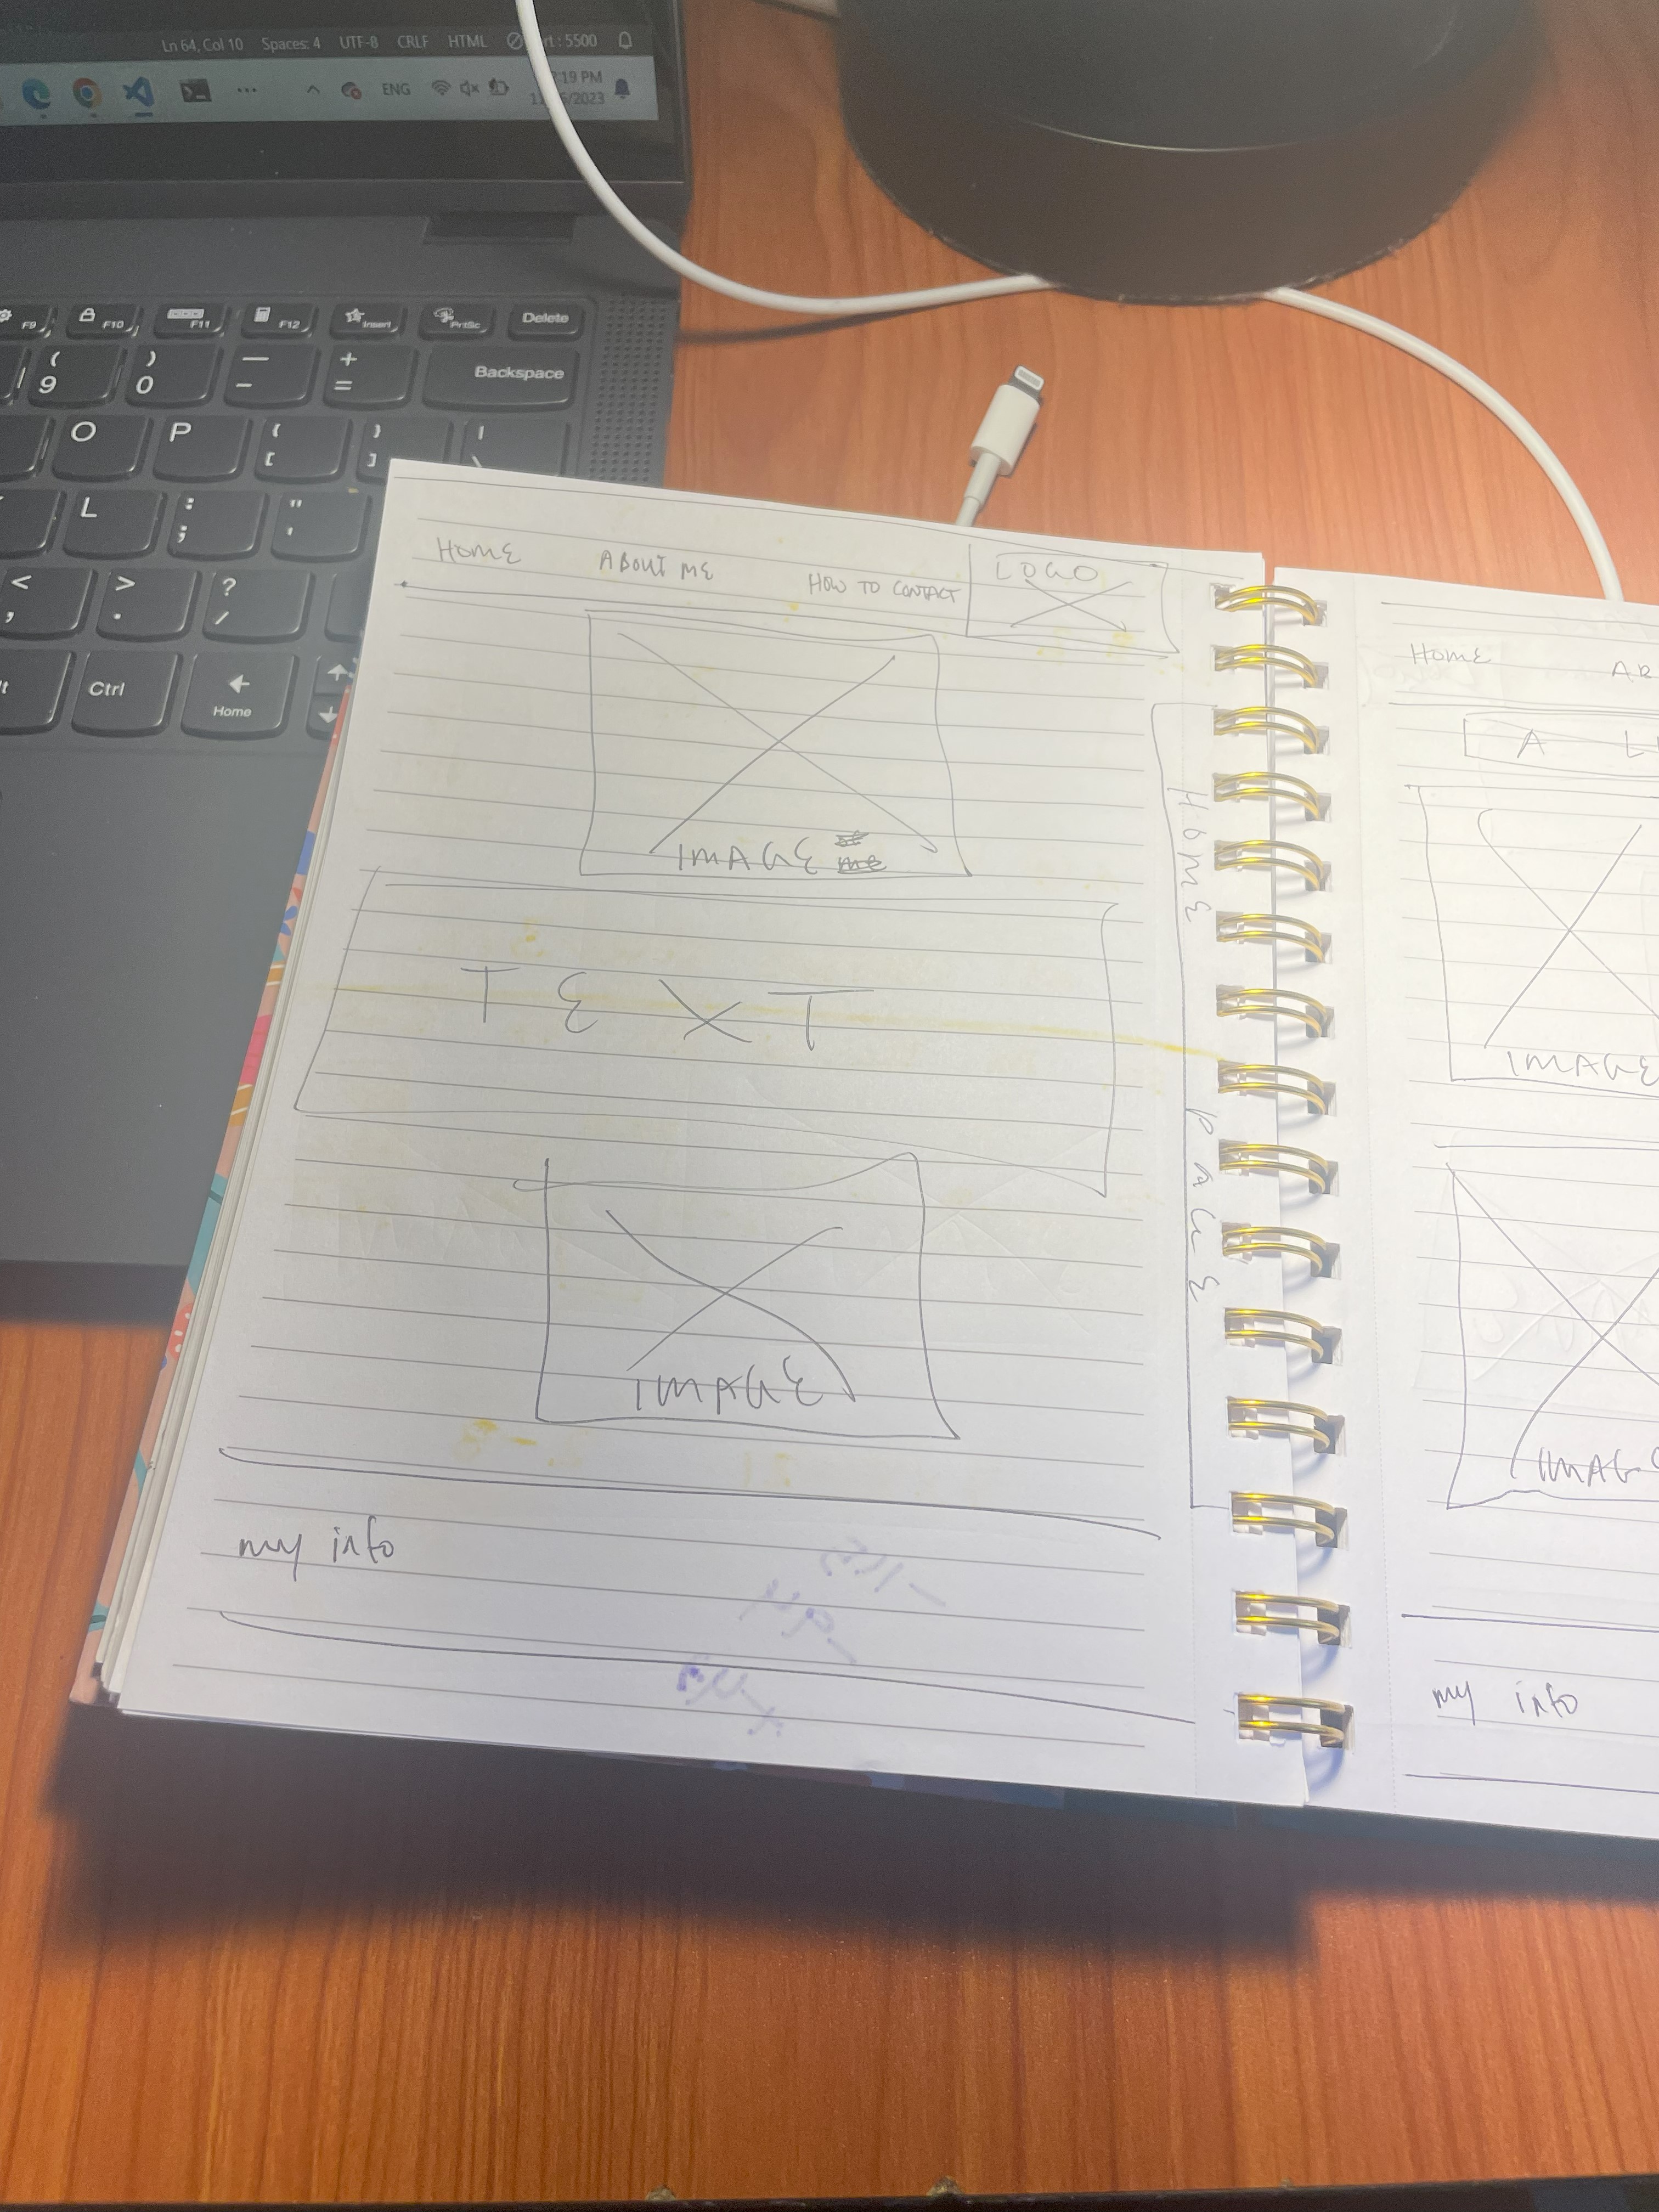 Ln 64, Col 10 Spaces: 4 UTF-8 CRLF HTML : 5500
19 PM
ENG
/2023
F9 F10 F11 F12 Insert PrtSc Delete
( ) — +
9 0 - = Backspace
O P { } |
[ ] \
L : "
; '
< > ?
, . /
Ctrl Home
HOME ABOUT ME HOW TO CONTACT LOGO
IMAGE
TEXT
IMAGE
my info
HOME PAGE
HOME AB
A LI
IMAGE
IMAG
my info